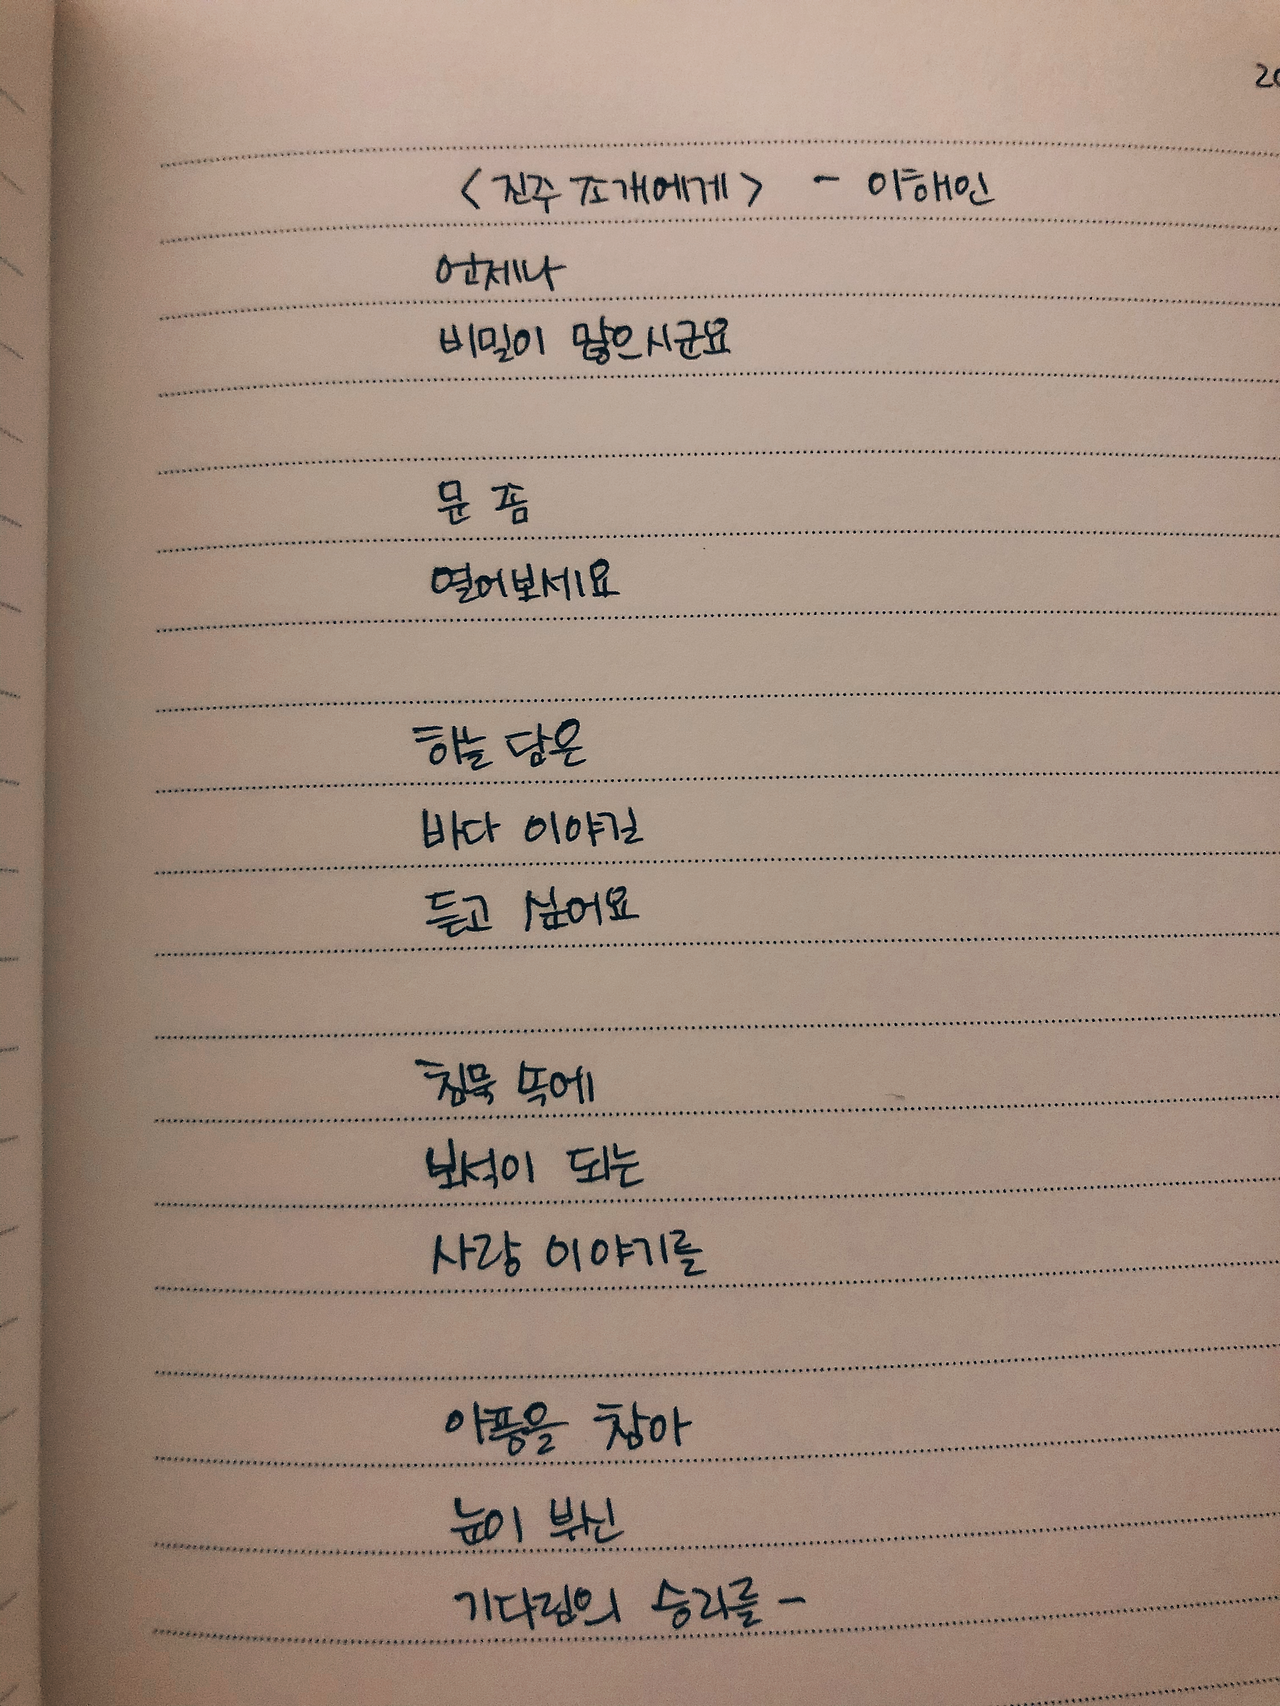 20
<진주 조개에게> - 이해인
언제나
비밀이 많으시군요
문 좀
열어보세요
하늘 담은
바다 이야길
듣고 싶어요
침묵 속에
보석이 되는
사랑 이야기를
아픔을 참아
눈이 부신
기다림의 승리를 -